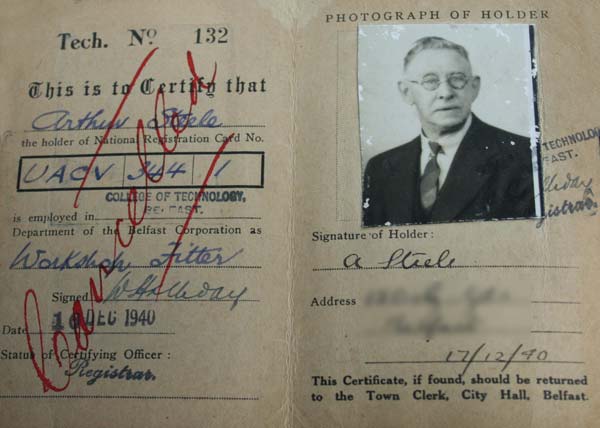 Tech. Nº 132
This is to Certify that
Arthur Steele
the holder of National Registration Card No.
UACV 344 1
COLLEGE OF TECHNOLOGY,
BELFAST.
is employed in
Department of the Belfast Corporation as
Workshop Fitter
Signed W Halliday
Date 16 DEC 1940
Status of Certifying Officer :
Registrar.
Cancelled
PHOTOGRAPH OF HOLDER
TECHNOLOGY
FAST.
lliday
gistrar.
Signature of Holder :
A Steele
Address
17/12/40
This Certificate, if found, should be returned
to the Town Clerk, City Hall, Belfast.